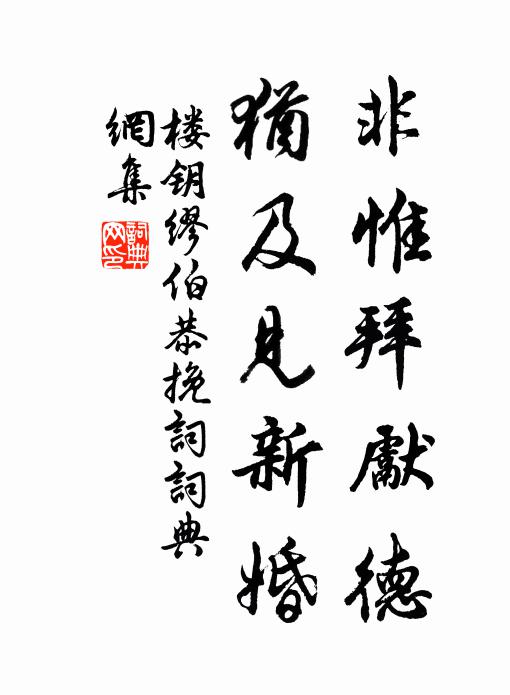 非惟拜獻德
猶及見新婚
楼钥缪伯恭挽詞詞典
網集
詞典網印